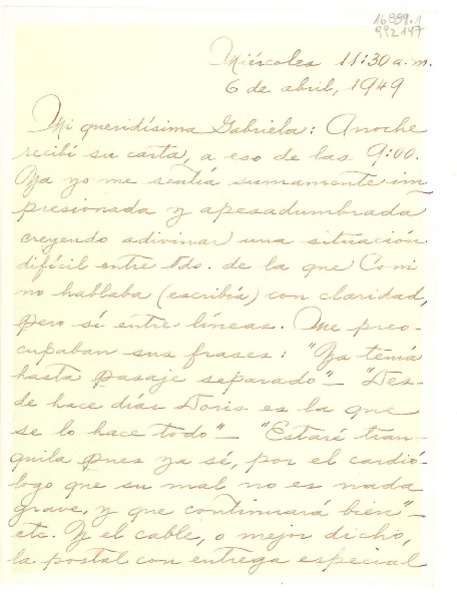 16999.1
992147
Miércoles 11:30 a.m.
6 de abril, 1949
Mi queridísima Gabriela: Anoche
recibí su carta, a eso de las 9:00.
Ya yo me sentía sumamente im-
presionada y apesadumbrada
creyendo adivinar una situación
difícil entre Uds. de la que Coni
no hablaba (escribía) con claridad,
pero sí entre líneas. Me preo-
cupaban sus frases: "Ya tenía
hasta pasaje separado"— "Des-
de hace días Doris es la que
se lo hace todo"— "Estaré tran-
quila pues ya sé, por el cardió-
logo que su mal no es nada
grave, y que continuará bien"—
etc. Y el cable, o mejor dicho,
la postal con entrega especial